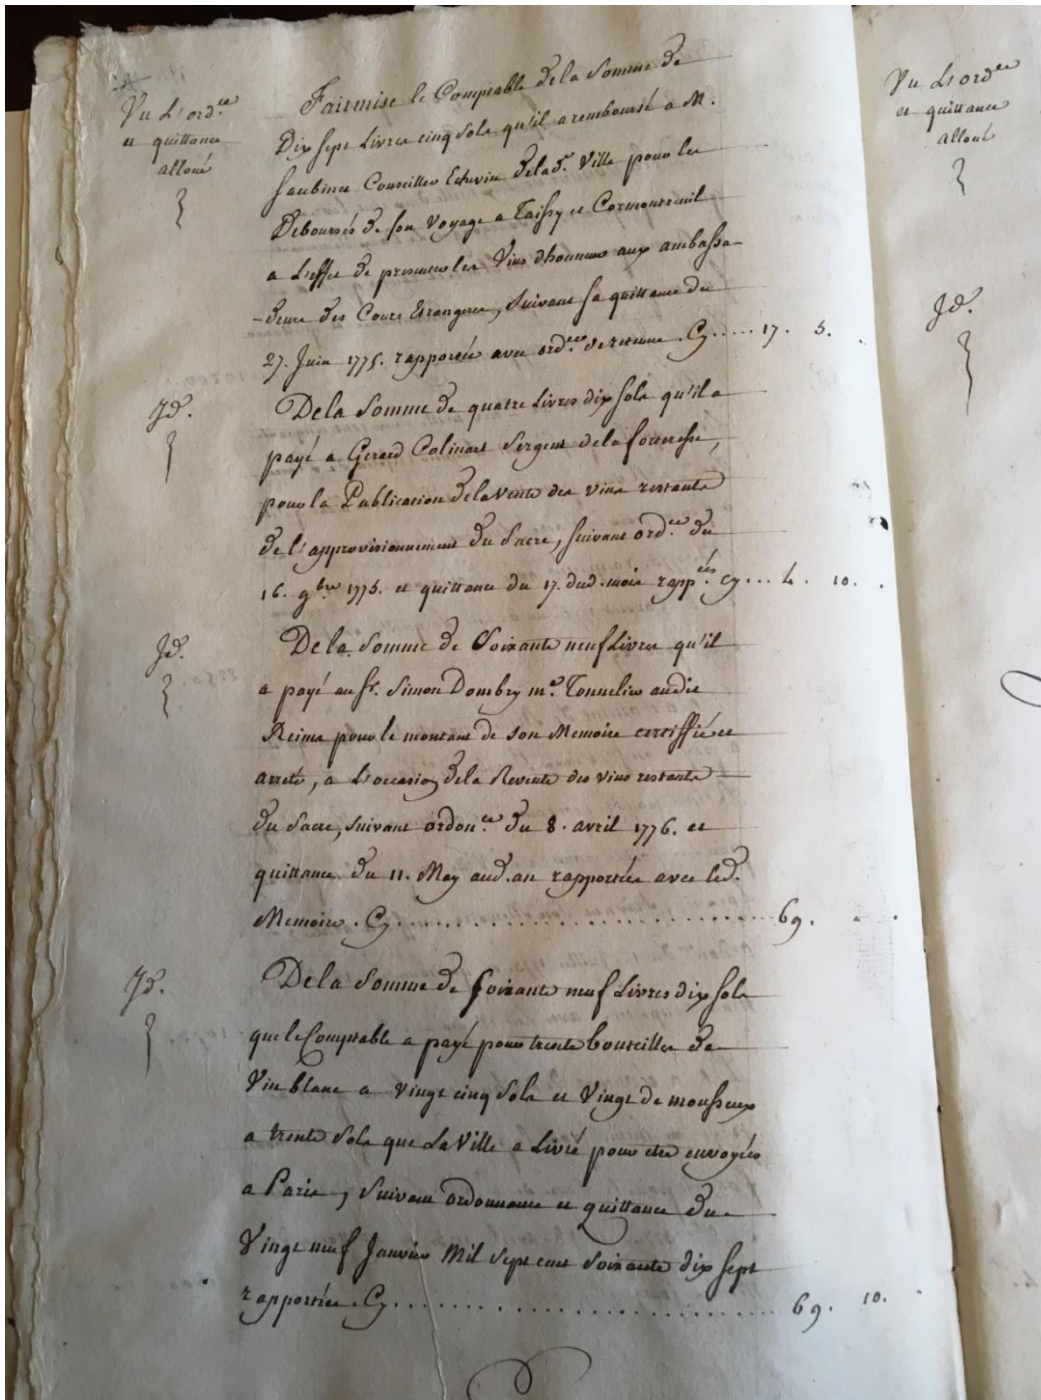 Vu L'ord.ce
et quittance
alloué
Fait mise le Comptable de la Somme de
Dix sept Livres cinq sols qu'il a remboursé a M.
Conseiller Echevin de lad.e Ville pour les
Deboursés de son Voyage a Taissy et Cormontreuil
a L'effet de presenter les Vins d'honneur aux ambassa-
-deurs des Cours Etrangeres, Suivant sa quittance du
27. Juin 1775. rapportée avec ord.ce Cy..... 17. 5.
Jd.
De la Somme de quatre Livres dix sols qu'il a
payé a Gerard Colinart Sergent de la forteresse,
pour la Publication de la Vente des vins restants
de l'approvisionnement du Sacre, suivant ord.ce du
16. 9.bre 1775. et quittance du 17. dud. mois rapp.ées Cy... 4. 10.
Jd.
De la Somme de Soixante neuf Livres qu'il
a payé au Sr. Simon Dombry m.e Tonnelier audit
Reims pour le montant de son Memoire certiffié et
arreté, a L'occasion de la Revente des vins restants
du Sacre, suivant ordon.ce du 8. avril 1776. et
quittance du 11. May aud. an rapportées avec led.
Memoire. Cy............ 69.
Jd.
De la Somme de soixante neuf Livres dix sols
que le Comptable a payé pour trente bouteilles de
Vin blanc a vingt cinq Sols et Vingt de mousseux
a trente Sols que La Ville a Livré pour etre envoyées
a Paris, Suivant ordonnance et quittance du
Vingt neuf Janvier Mil Sept cent soixante dix sept
rapportées. Cy............ 69. 10.
Vu L'ord.ce
et quittance
alloué
Jd.